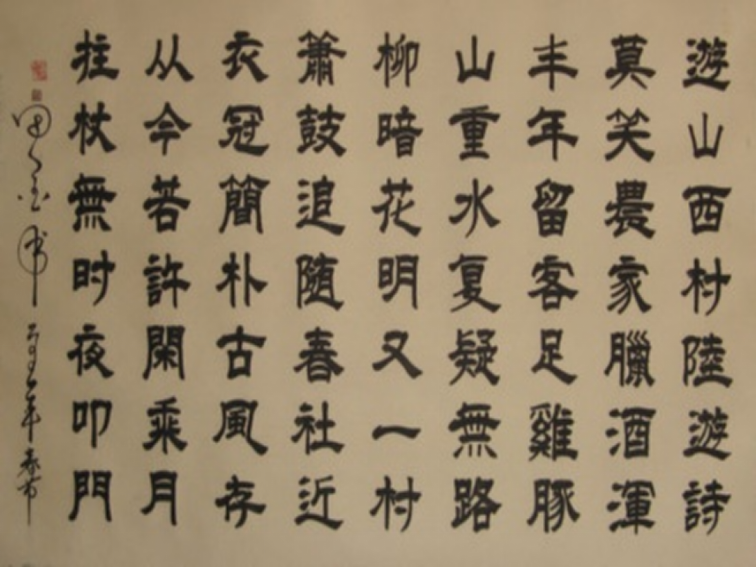 遊山西村陸遊詩
莫笑農家臘酒渾
丰年留客足雞豚
山重水复疑無路
柳暗花明又一村
簫鼓追随春社近
衣冠簡朴古風存
从今若許閑乘月
拄杖無时夜叩門
年春节